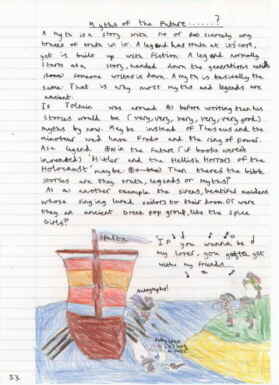 Myths of the Future......?
A myth is a story with no or
traces of truth in it. A legend has truth at its
yet is built up with fiction. A legend normally
starts as a story, handed down the generations until
someone writes it down. A myth is basically the
same. That is why most myths and legends are
ancient.
If Tolkein was around before writing then his
stories would be (very, very, very, very, very good)
myths by now. Maybe instead of Theseus and the
minotaur we'd have Frodo and the ring of power.
As a legend in the future (if books weren't
invented) 'Hitler and the Hellish Horrors of the
Holocaust' maybe. Then there's the bible
stories are they truth, legends or myths?
As another example the sirens, beautiful maidens
whose singing lured sailors to their doom. Or were
they an ancient Greek pop group, like the Spice
Girls?
"If you wanna be
my lover, you gotta get
with my friends
Autographs!
53.